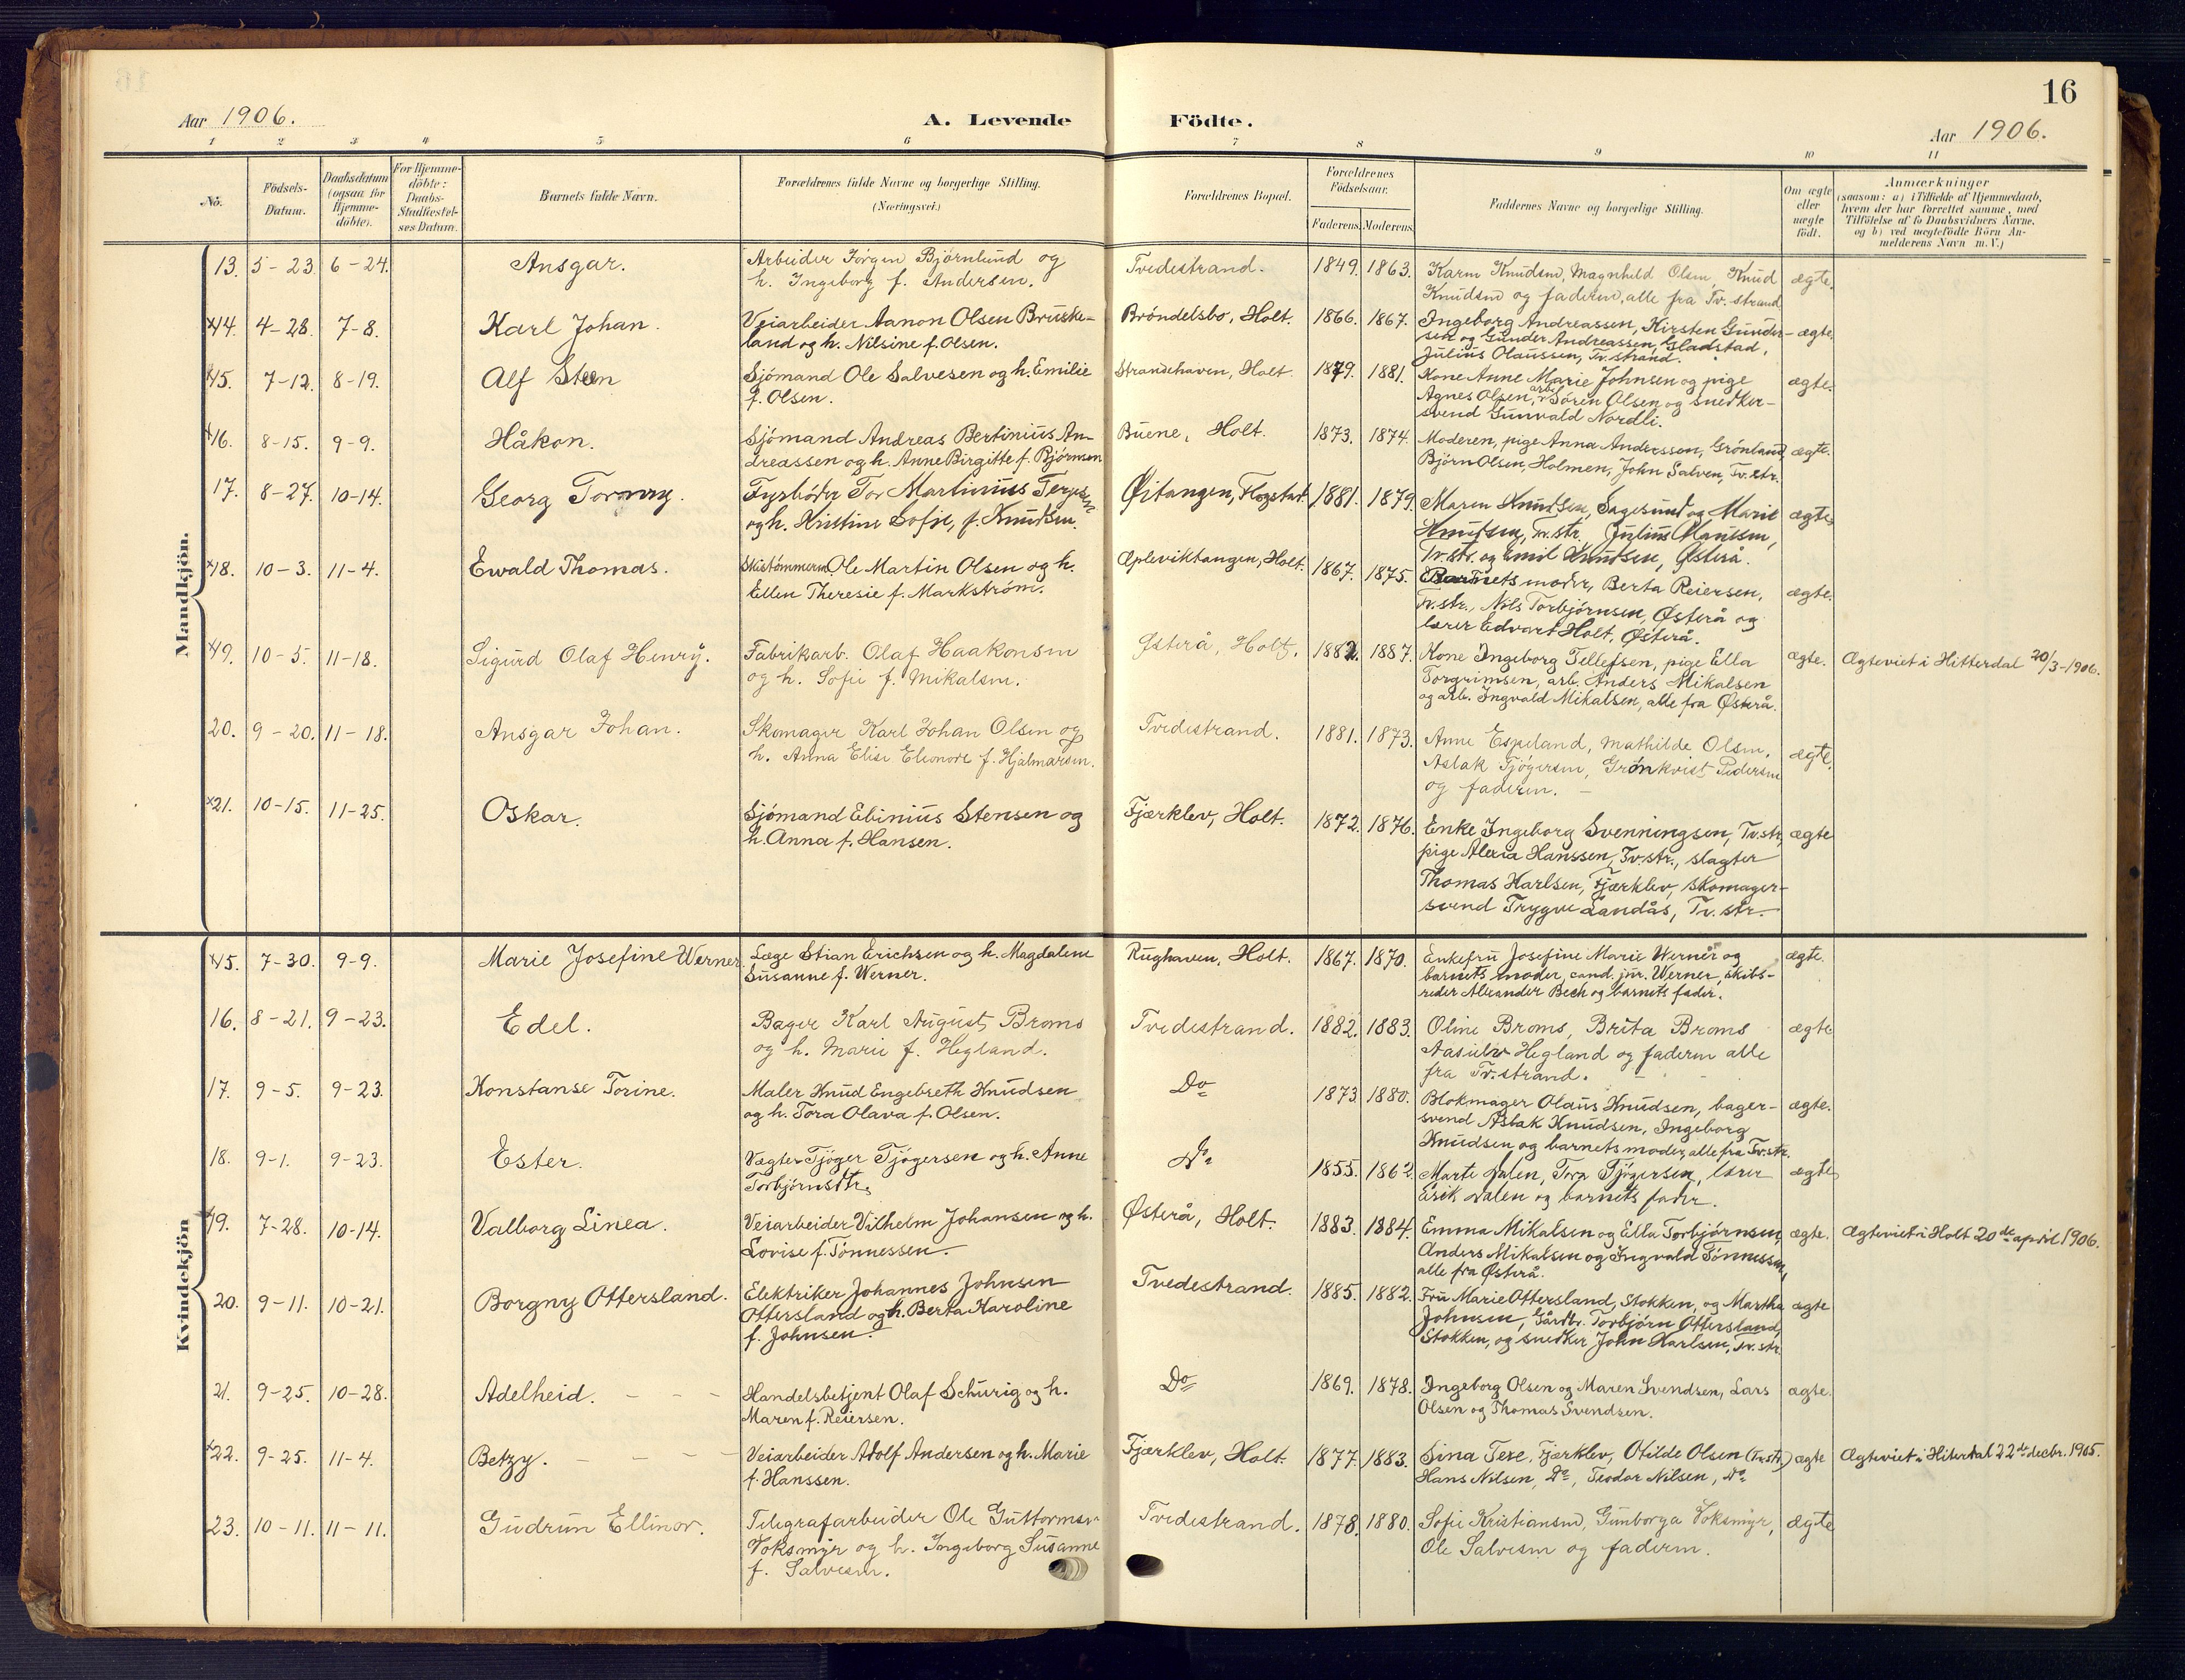 16
Aar 1906.
A. Levende Födte.
Aar 1906.
1 2 3 4 5 6 7 8 9 10 11
No.
Födsels-Datum.
Daabsdatum (ogsaa for Hjemme-döbte).
For Hjemme-döbte: Daabs-Stadfæstel-ses Datum.
Barnets fulde Navn.
Forældrenes fulde Navne og borgerlige Stilling.
(Næringsvei.)
Forældrenes Bopæl.
Forældrenes Födselsaar.
Faderens. Moderens.
Faddernes Navne og borgerlige Stilling.
Om ægte eller uægte födt.
Anmærkninger
(saasom: a) i Tilfælde af Hjemmedaab,
hvem der har forrettet samme, med
Tilföielse af to Daabsvidners Navne,
og b) ved uægtefödte Börn An-
melderens Navn m. V.)
Mandkjön.
13. 5-23. 6-24. Ansgar.
Arbeider Jörgen Bjørnlund og
h. Ingeborg f. Andersen.
Tvedestrand. 1849. 1863.
Karen Knudsen, Magnhild Olsen, Knud
Knudsen og faderen, alle fra Tv. strand
ægte.
x14. 4-28. 7-8. Karl Johan.
Veiarbeider Aanon Olsen Bruske-
land og h. Nilsine f. Olsen.
Bröndelsbo, Holt. 1866. 1867.
Ingeborg Andreassen, Kirsten Gunder-
sen og Gunder Andreassen, Gladstad,
Julius Olaussen, Tv. strand.
ægte.
x15. 7-12. 8-19. Alf Steen
Sjömand Ole Salvesen og h. Emilie
f. Olsen.
Strandehaven, Holt 1879. 1881.
Kone Anne Marie Johnsen og pige
Agnes Olsen, arb. Sören Olsen og snedker-
svend Gunvald Nordli.
ægte.
x16. 8-15. 9-9. Håkon.
Sjömand Andreas Bertinius An-
dreassen og h. Anne Birgitte f. Bjørnsen
Buene, Holt. 1873. 1874.
Moderen, pige Anna Anderssen, Grönland,
Björn Olsen, Holmen, John Salven, Tv. str.
ægte.
17. 8-27. 10-14. Georg Tormey.
Fyrböder Tor Martinius Terjesen
og h. Kristine Sofie, f. Knudsen.
Øitangen, Flogstad. 1881. 1879.
Maren Knudsen, Sagesund og Marie
Knudsen, Tv. str., Julius Olaussen,
Tv. str. og Emil Knudsen, Østerå.
ægte
x18. 10-3. 11-4. Ewald Thomas.
Skibstømmerm. Ole Martin Olsen og h.
Ellen Theresie f. Markström.
Æpleviktangen, Holt. 1867. 1875.
Barnets moder, Berta Reiersen,
Tv. str., Nils Torbjörnsen, Østerå og
lærer Edvart Holt, Østerå.
ægte.
x19. 10-5. 11-18. Sigurd Olaf Henry.
Fabrikarb. Olaf Haakonsen
og h. Sofie f. Mikalsen.
Østerå, Holt. 1882. 1887.
Kone Ingeborg Tellefsen, pige Ella
Torgrimsen, arb. Anders Mikalsen
og arb. Ingvald Mikalsen, alle fra Østerå.
ægte. Ægteviet i Hitterdal 20/3-1906.
20. 9-20. 11-18. Ansgar Johan.
Skomager Karl Johan Olsen og
h. Anna Elise Eleonore f. Hjalmarsen.
Tvedestrand. 1881. 1873.
Anne Espeland, Mathilde Olsen,
Aslak Tjögersen, Grönkvist Pedersen
og faderen. –
ægte.
x21. 10-15. 11-25. Oskar.
Sjömand Ebinius Stensen og
h. Anna f. Hansen.
Fjærklev, Holt. 1872. 1876.
Enke Ingeborg Svenningsen, Tv. str.,
pige Alexia Hanssen, Tv. str., slagter
Thomas Karlsen, Fjærklev, skomager-
svend Trygve Landås, Tv. str.
ægte
Kvindekjön
x15. 7-30. 9-9. Marie Josefine Werner
Læge Stian Erichsen og h. Magdalene
Susanne f. Werner.
Rughaven, Holt. 1867. 1870.
Enkefru Josefine Marie Werner og
barnets moder, cand. jur. Werner, skibs-
reder Alexander Bech og barnets fader.
ægte.
16. 8-21. 9-23. Edel.
Bager Karl August Broms
og h. Marie f. Hegland.
Tvedestrand. 1882. 1883.
Oline Broms, Brita Broms
Aasulv Hegland og faderen alle
fra Tv. strand.
ægte
17. 9-5. 9-23. Konstanse Torine.
Maler Knud Engebreth Knudsen
og h. Tora Olava f. Olsen.
Do 1873. 1880.
Blokmager Olaus Knudsen, bager-
svend Aslak Knudsen, Ingeborg
Knudsen og barnets moder, alle fra Tv. str.
ægte.
18. 9-1. 9-23. Ester.
Vægter Tjöger Tjögersen og h. Anne
Torbjørnsttr.
Do 1855. 1862.
Marte Dalen, Tora Tjögersen, lærer
Erik Dalen og barnets fader.
ægte
x19. 7-28. 10-14. Valborg Linea.
Veiarbeider Vilhelm Johansen og h.
Lovise f. Tönnessen.
Østerå, Holt. 1883. 1884.
Emma Mikalsen og Ella Torbjørnsen,
Anders Mikalsen og Ingvald Tönnessen,
alle fra Østerå.
ægte. Ægteviet i Holt 20de april 1906.
20. 9-11. 10-21. Borgny Ottersland.
Elektriker Johannes Johnsen
Ottersland og h. Berta Karoline
f. Johnsen.
Tvedestrand. 1885. 1882.
Fru Marie Ottersland, Stokken, og Martha
Johnsen, Gårdbr. Torbjörn Ottersland,
Stokken, og snedker John Karlsen, Tv. str.
ægte
21. 9-25. 10-28. Adelheid. – – –
Handelsbetjent Olaf Schurig og h.
Maren f. Reiersen.
Do 1869. 1878.
Ingeborg Olsen og Maren Svendsen, Lars
Olsen og Thomas Svendsen.
ægte.
x22. 9-25. 11-4. Betzy. – – –
Veiarbeider Adolf Andersen og h. Marie
f. Hanssen.
Fjærklev, Holt. 1877. 1883.
Sina Texe, Fjærklev, Otilde Olsen (Tv. str.)
Hans Nilsen, Do, Teodor Nilsen, Do
ægte Ægteviet i Hiterdal 22de decbr. 1905.
23. 10-11. 11-11. Gudrun Ellinor.
Telegrafarbeider Ole Guttormsen
Voksmyr og h. Ingeborg Susanne
f. Salvesen.
Tvedestrand. 1878. 1880.
Sofie Kristiansen, Gunborga Voksmyr,
Ole Salvesen og faderen.
ægte